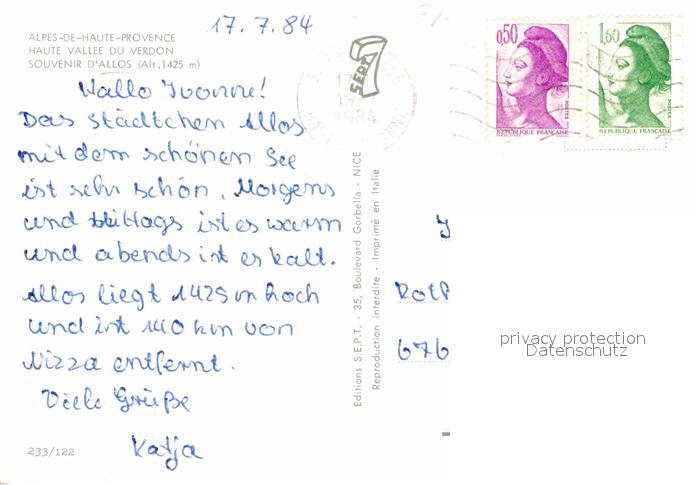 17.7.84
ALPES-DE-HAUTE-PROVENCE
HAUTE VALLEE DU VERDON
SOUVENIR D'ALLOS (Alt,1425 m)
Hallo Yvonne!
Das städtchen Allos
mit dem schönen See
ist sehr schön. Morgens
und Mittags ist es warm
und abends ist es kalt.
Allos liegt 1425 m hoch
und ist 140 km von
Nizza entfernt.
Viele Grüße
Katja
233/122
Editions S.E.P.T. - 35, Boulevard Gorbella - NICE
Reproduction interdite - Imprimé en Italie
SEPT
1984
0,50
POSTES
REPUBLIQUE FRANÇAISE
1,60
POSTES
REPUBLIQUE FRANÇAISE
Y
676
privacy protection
Datenschutz